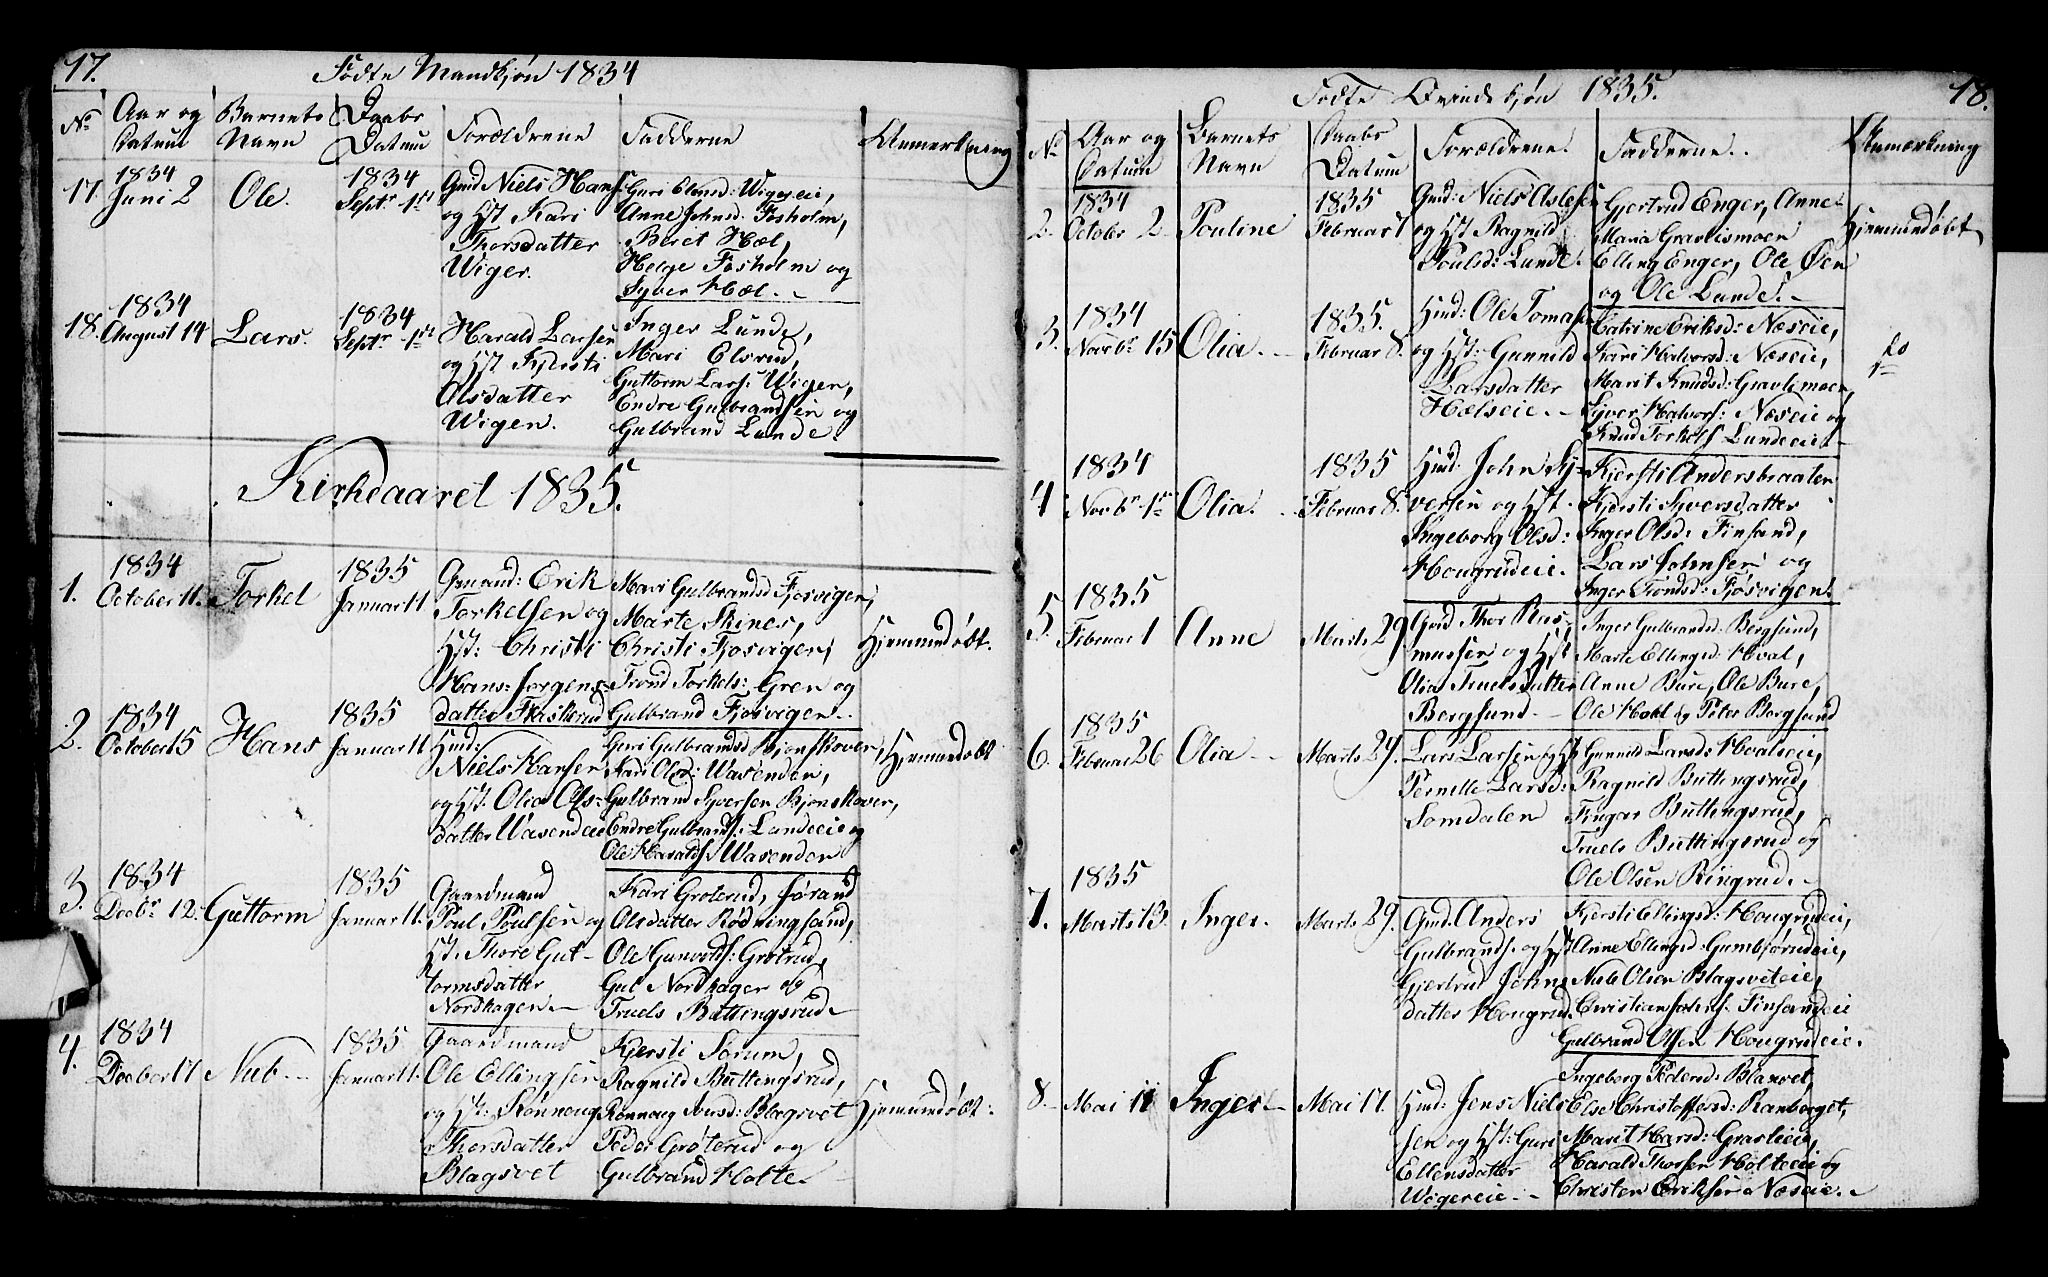 17.
Födte Mandkjøn 1834
No
Aar og
Datum
Barnets
Navn
Daabs
Datum
Forældrene
Fadderne
Anmerkning
17.
1834
Juni 2
Ole.
1834
Septr. 1ste
Gmd Niels Hans:
og Hst Kari
Thorsdatter
Wiger.
Guri Eland: Wigereie,
Anne Johnsd: Fosholm,
Beret Hæl,
Helge Fosholm og
Syver Hæl. -
18.
1834
August 14
Lars.
1834
Septr. 1ste
Harald Larsen
og Hst Kjersti
Olsdatter
Wigen.
Inger Lunde,
Mari Elsrud,
Guttorm Lars: Wigen,
Endre Gulbrandsen og
Gulbrand Lunde.
Kirkeaaret 1835.
1.
1834
October 11.
Torkel
1835
Januar 11
Gmand: Erik
Torkelsen og
Hst: Christi
Hans: Jorgens-
datter
Mari Gulbrandsd Fjosvigen,
Marte Skinnes,
Christi Fjosvigen,
Trond Torkels: Gren og
Gulbrand Fjosvigen -
Hjemmedøbt.
2.
1834
October 15
Hans
1835
Januar 11
Hmd:
Niels Hansen
og Hst. Olia Ols-
datter Wasendeie
Guri Gulbrandsd Bjonskover,
Kari Olsd: Wasenden,
Gulbrand Syversen Bjonskover,
Endre Gulbrands: Lundeeie og
Ole Haralds: Wasenden
Hjemmedøbt
3.
1834
Decbr. 12.
Guttorm
1835
Januar 11.
Gaardmand
Poul Poulsen og
Hst. Thore Gut-
tormsdatter
Nordhagen -
Kari Groterud, Jørand
Olsdatter Rødningsand,
Ole Gunvolds: Grøtrud,
Gul Nordhagen og
Truels Buttingsrud -
4.
1834
Decbor 17
Nub -
1835
Januar 11.
Gaardmand
Ole Ellingsen
og Hst: Rønnoug
Thorsdatter
Blagsvet
Kjersti Sorum,
Ragnild Buttingsrud,
Rønnoug Iversd: Blagsvet
Peder Grøterud og
Gulbrand Holte. -
Hjemmedøbt.
18.
Födte Qvindekjøn 1835.
No
Aar og
Datum
Barnets
Navn
Daabs
Datum
Forældrene.
Fadderne.
Anmærkning
2.
1834
Octobr 2.
Pouline
1835
Februar 1
Gmd: Niels Aslesen
og Hst Ragnild
Poulsd: Lunde.
Gjertrud Enger, Anne
Maria Gravlismoen
Elling Enger, Ole Øen
og Ole Lunde. -
Hjemmedøbt
3.
1834
Novbr 15
Olia. -
1835.
Februar 8.
Hmd: Ole Tomasen
og Hst: Gunnild
Larsdatter
Hælseie. -
Catrine Eriksd: Næseie,
Kari Halvorsd: Næseie,
Marit Knudsd: Gravlimoen,
Syver Halvors: Næseie og
Knud Torkels Lundeeie -
do
4
1834
Novbr. 1ste
Olia. -
1835
Februar 8.
Hmd: John Sy-
versen og Hst.
Ingeborg Olsd:
Hougrudeie.
Kjersti Andersbraaten
Kjersti Syversdatter
Inger Olsd: Finsand,
Lars Johnsen og
Inger Tronsd: Fjøsvigen.
5.
1835
Februar 1
Anne
Marts 29
Gmd Thor Ras-
mussen og Hst
Olia Truelsdatter
Bergsund. -
Inger Gulbrandsd: Bergsund,
Marte Ellingsd: Hval,
Anne Bure, Ole Bure,
Ole Hval og Peter Bergsund
6.
1835
Februar 26
Olia -
Marts 29.
Lars Larsen og Hst
Pernille Larsd:
Somdalen
Gunnild Larsd: Hvaleeie,
Ragnild Buttingsrud,
Fingar Buttingsrud,
Truels Buttingsrud og
Ole Olsen Ringrud. -
7.
1835
Marts 13.
Inger.
Marts 29.
Gmd. Anders
Gulbrands. og Hst
Gjertrud Johns-
datter Hougrud.
Kjersti Ellingsd: Hougrudeie,
Anne Ellingsd: Gumbjørudeie,
Nub Olsen Blagsveteie,
Christian Johns. Finsandeie
Gulbrand Olsen Hougrudeie.
8.
Mai 11
Inger. -
Mai 17.
Hmd: Jens Niels-
sen og Hst: Guri
Ellensdatter
Wigereie -
Ingeborg Pedersd: Blaxvet,
Else Christoffersd: Ranborget,
Marit Harsd: Gravlieie,
Harald Thorsen Holteeie og
Christen Eriksen Næseie. -